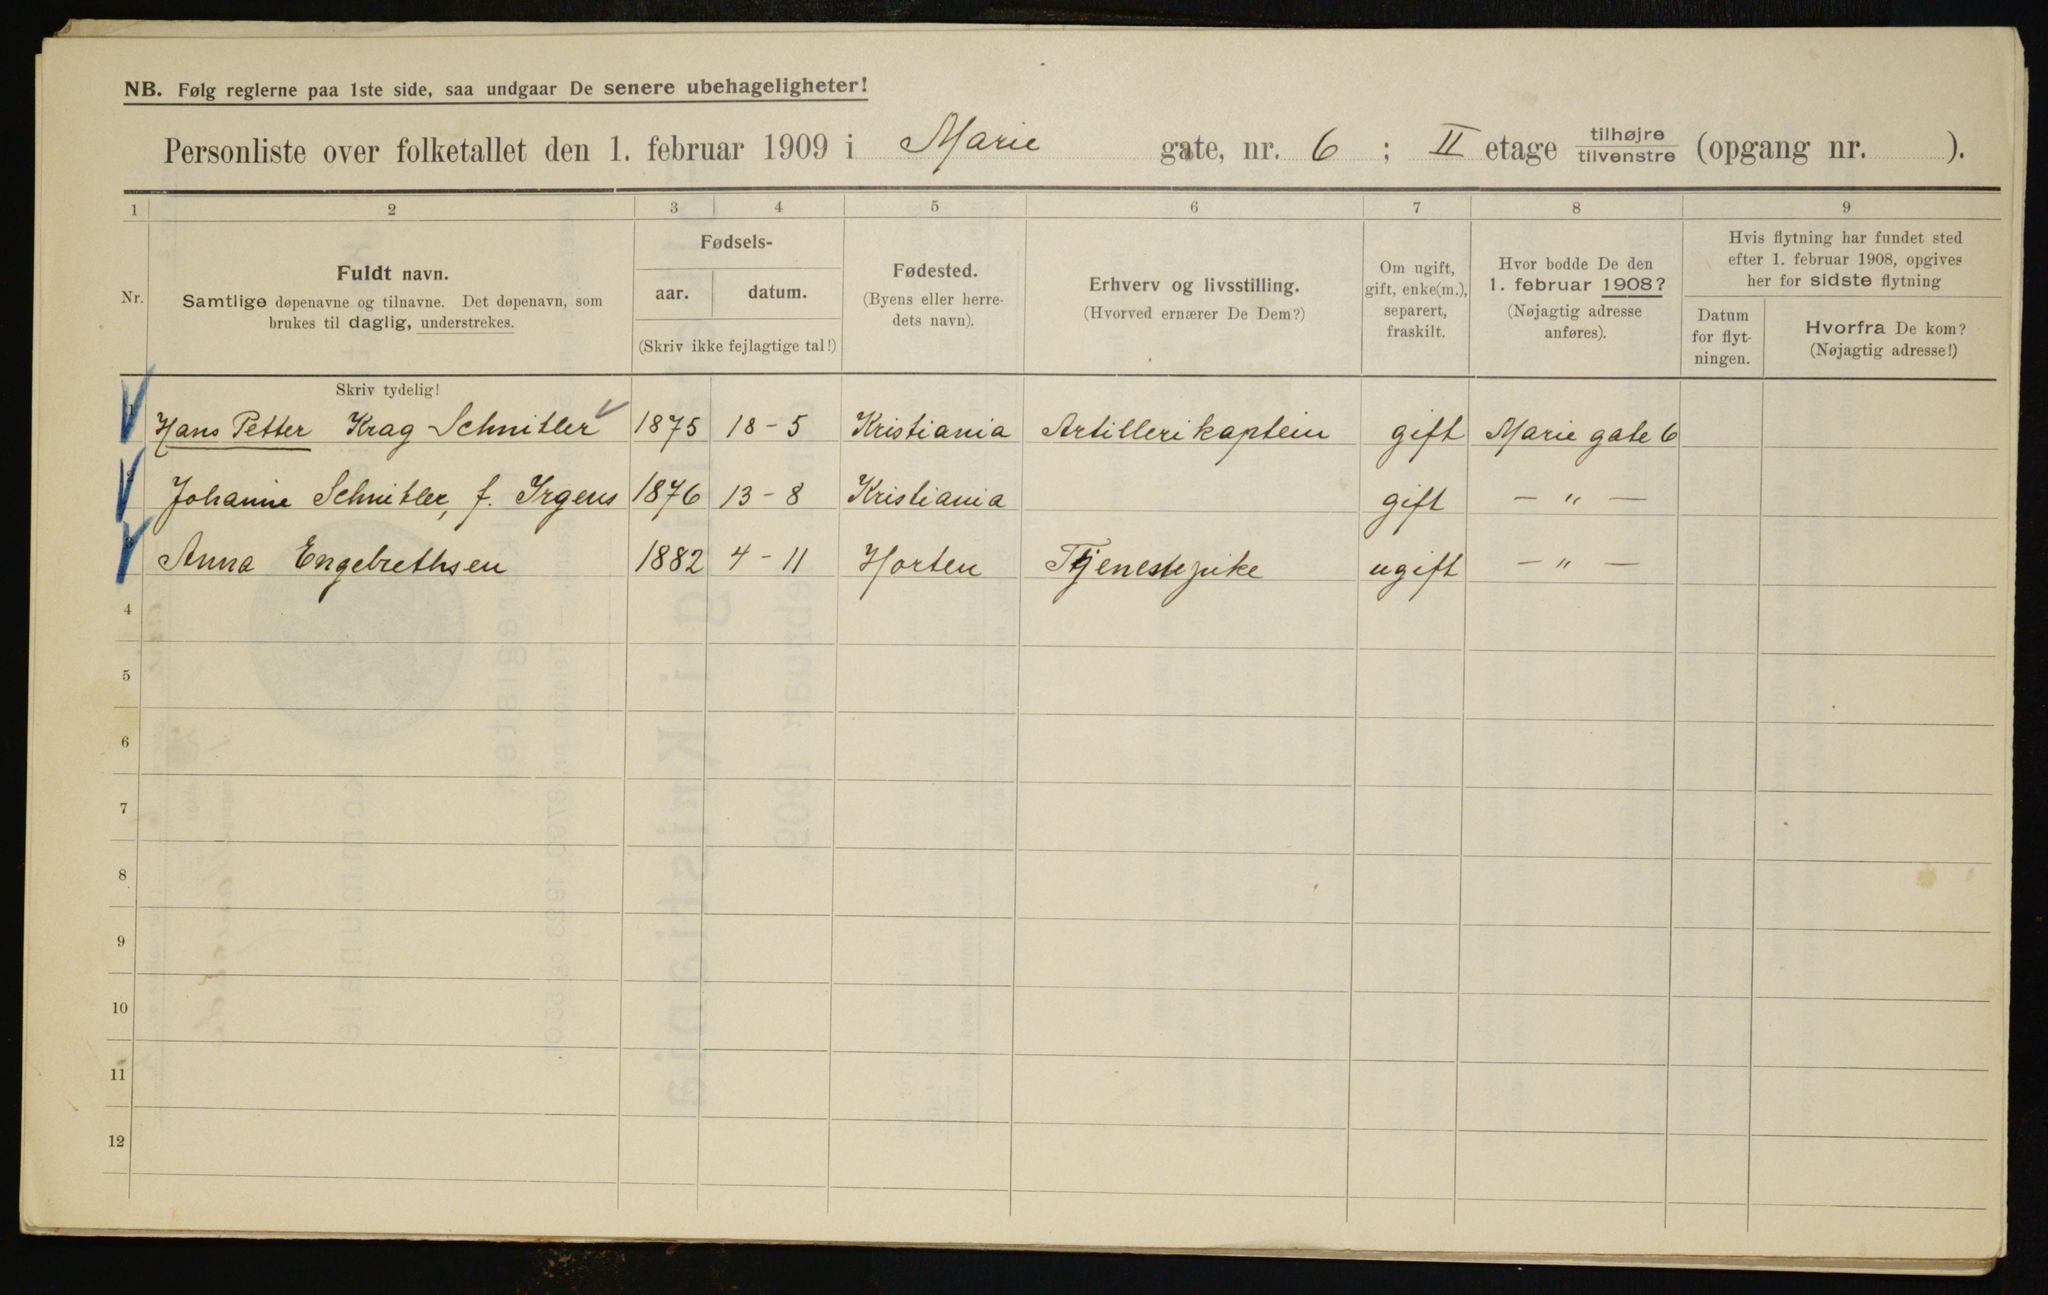 NB. Følg reglerne paa 1ste side, saa undgaar De senere ubehageligheter!
Personliste over folketallet den 1. februar 1909 i Marie gate, nr. 6 ; II etage tilhøjre tilvenstre (opgang nr. ).
1 2 3 4 5 6 7 8 9
Nr.
Fuldt navn.
Samtlige døpenavne og tilnavne. Det døpenavn, som
brukes til daglig, understrekes.
Fødsels-
aar. datum.
(Skriv ikke fejlagtige tal!)
Fødested.
(Byens eller herre-
dets navn).
Erhverv og livsstilling.
(Hvorved ernærer De Dem?)
Om ugift,
gift, enke(m.),
separert,
fraskilt.
Hvor bodde De den
1. februar 1908?
(Nøjagtig adresse
anføres).
Hvis flytning har fundet sted
efter 1. februar 1908, opgives
her for sidste flytning
Datum
for flyt-
ningen.
Hvorfra De kom?
(Nøjagtig adresse!)
Skriv tydelig!
Hans Petter Krag Schnitler 1875 18-5 Kristiania Artillerikaptein gift Marie gate 6
Johanne Schnitler, f. Irgens 1876 13-8 Kristiania gift — " —
Anna Engebrethsen 1882 4-11 Horten Tjenestepike ugift — " —
4
5
6
7
8
9
10
11
12